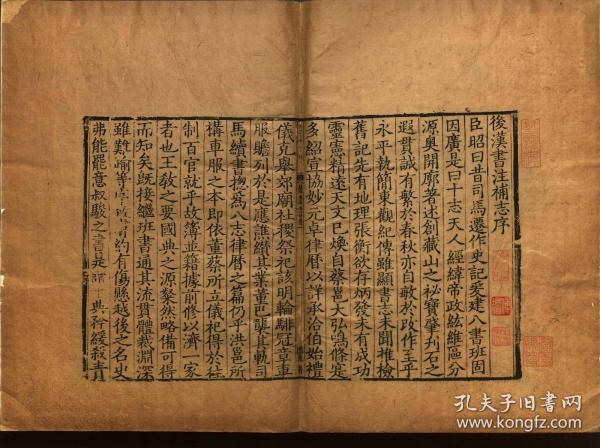 後漢書注補志序
臣昭曰昔司馬遷作史記爰建八書班固
因廣是曰十志天人經緯帝政紘維區分
源奧開廓著述創藏山之祕寶肇刋石之
遐貫誠有繁於春秋亦自敏於改作至乎
永平執簡東觀紀傳雖顯書志未聞推檢
舊記先有地理張衡欲存炳發未有成功
靈憲精遠天文已煥自蔡邕大弘鳴條寔
多紹宣協妙元卓律曆以詳承洽伯始禮
儀克舉郊廟社稷祭祀該明輪騑冠章車
服贍列於是應譙纘其業董巴襲其軌司
馬續書揔爲八志律曆之篇仍乎洪邕所
構車服之本即依董蔡所立儀祀得於往
制百官就乎故簿並籍據前修以濟一家
者也王敎之要國典之源粲然略備可得
而知矣旣接繼班書通其流貫體裁淵深
雖難踰等序致膚約有傷懸越後之名史
弗能罷意叔駿之書是謂十典矜緩殺青
孔夫子旧书网
www.kongfz.com